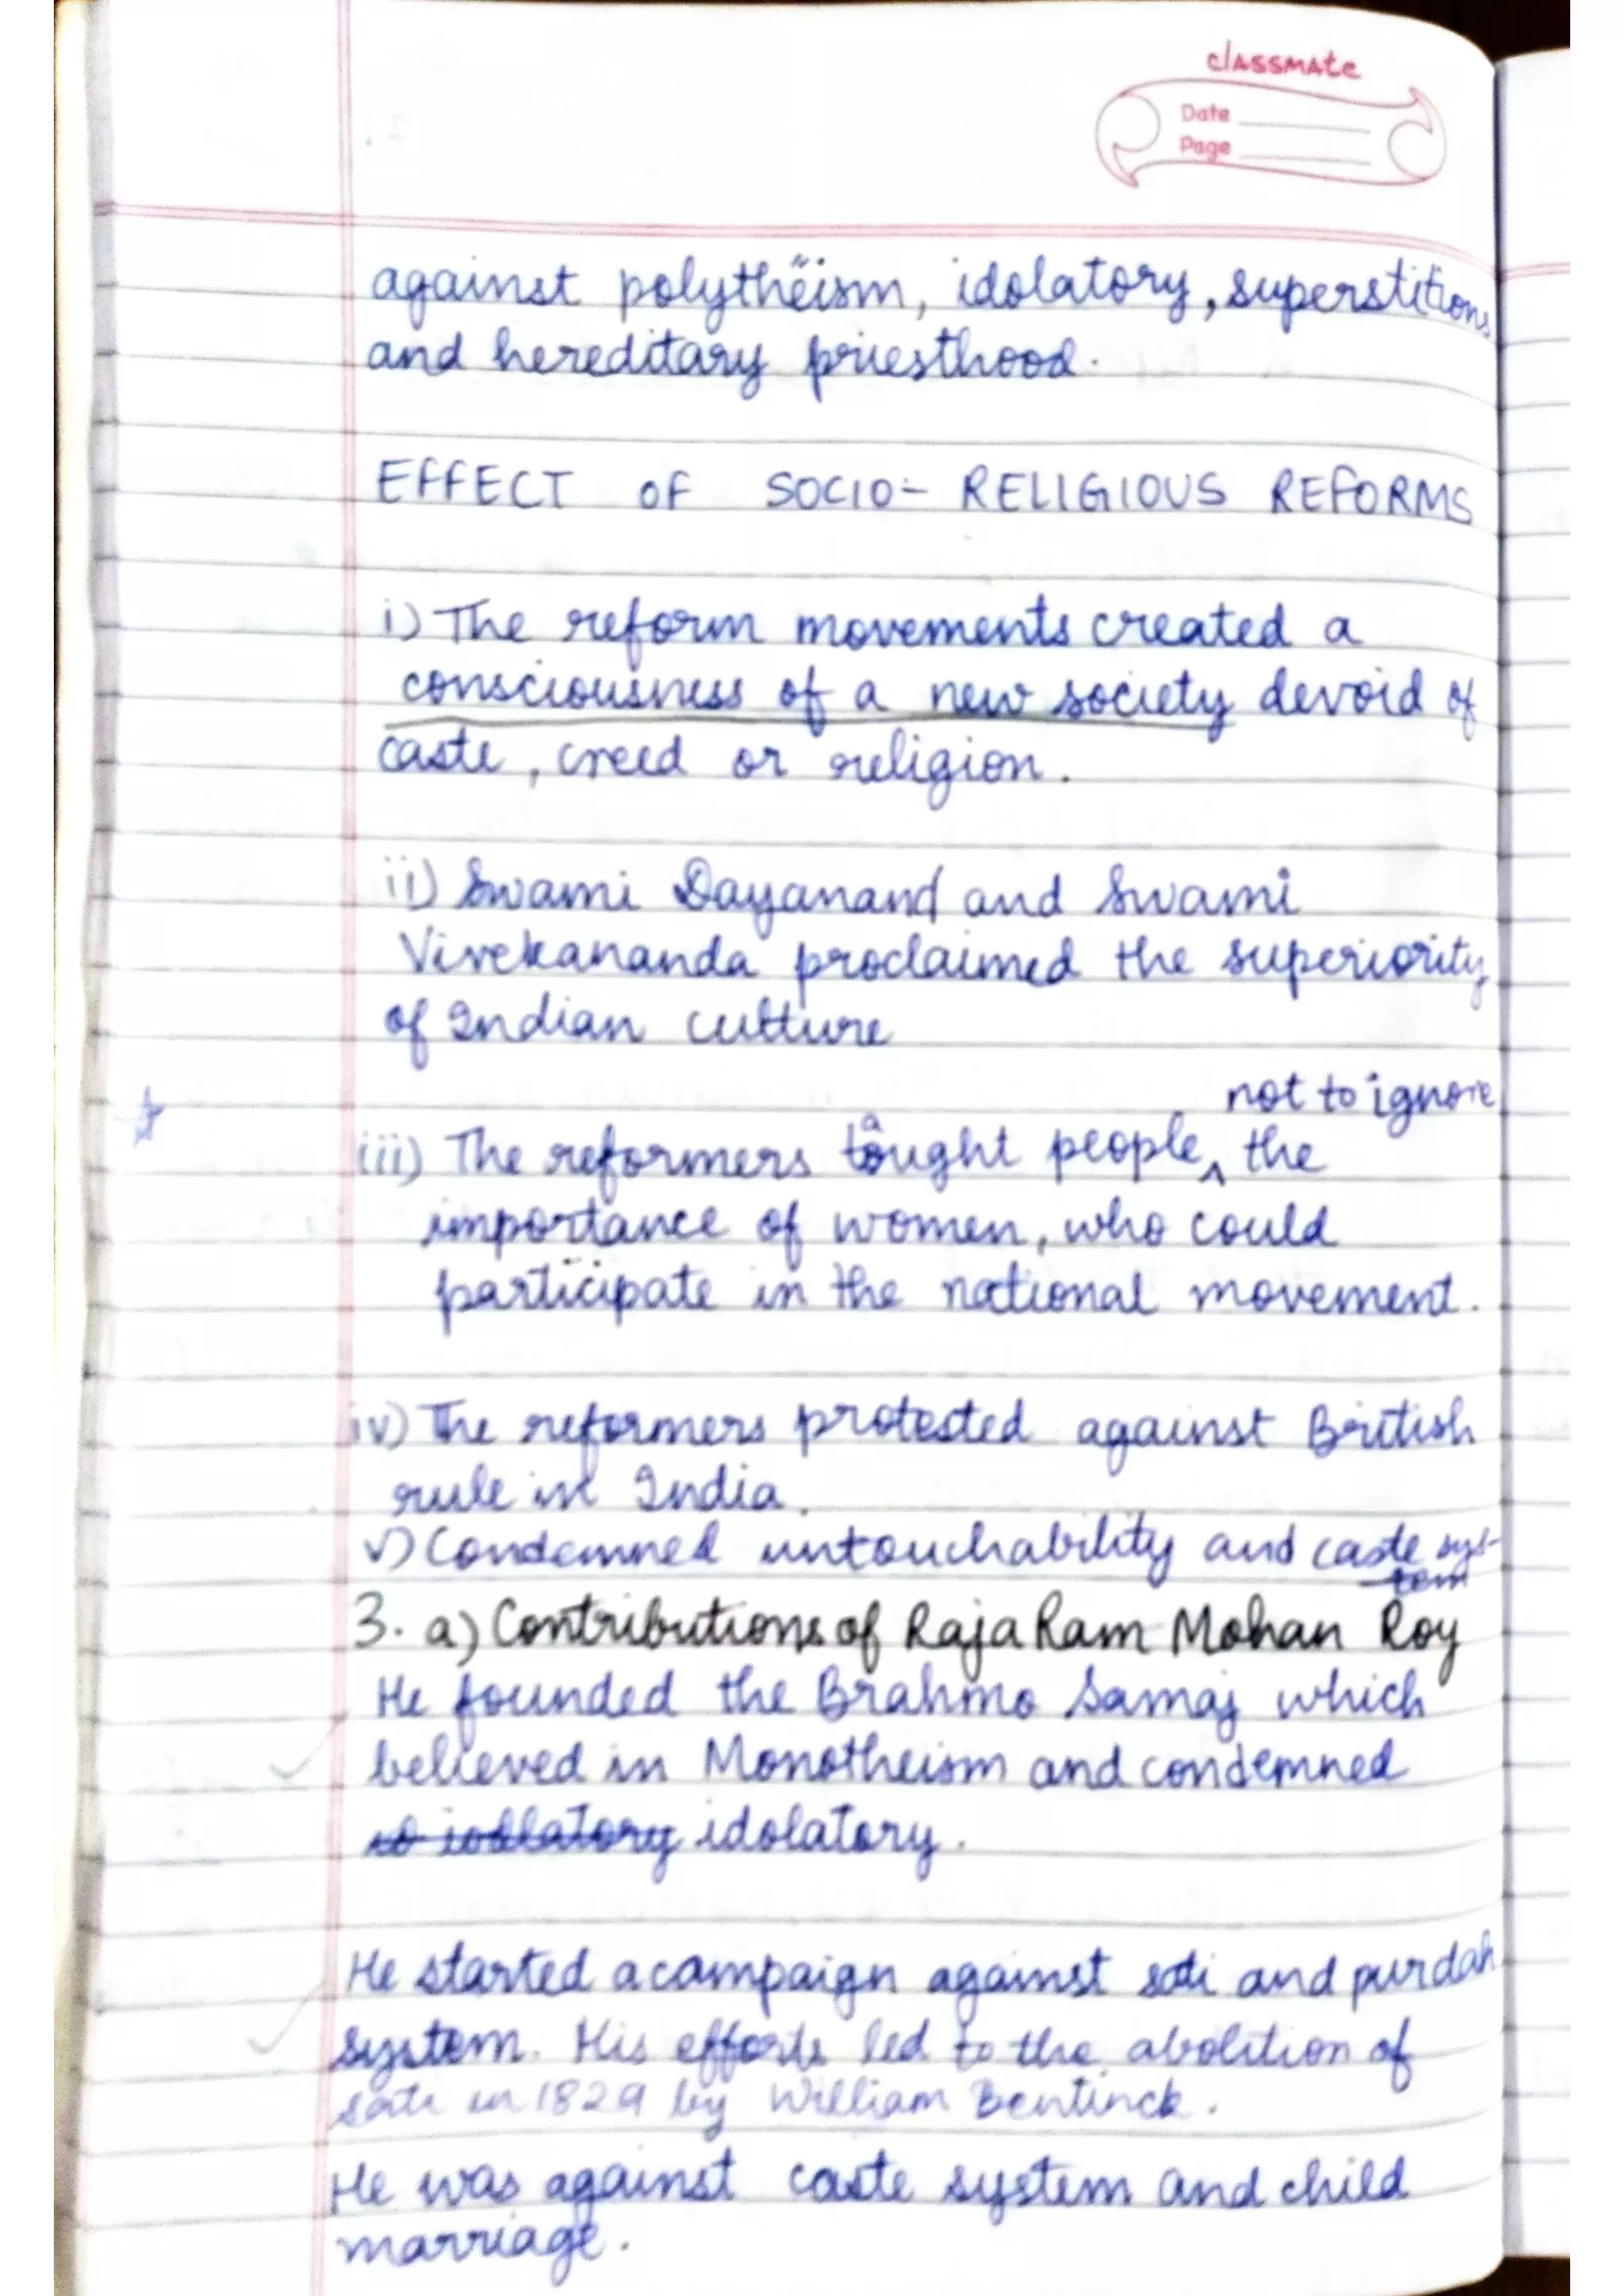 classmate
Date
Page
against polytheism, idolatory, superstitions
and hereditary priesthood.
EFFECT OF SOCIO- RELIGIOUS REFORMS
i) The reform movements created a
consciousness of a new society devoid of
caste, creed or religion.
ii) Swami Dayanand and Swami
Vivekananda proclaimed the superiority
of Indian culture
not to ignore
iii) The reformers taught people ^ the
importance of women, who could
participate in the national movement.
iv) The reformers protested against British
rule in India.
v) Condemned untouchability and caste sys-
tem
3. a) Contributions of Raja Ram Mohan Roy
He founded the Brahmo Samaj which
believed in Monotheism and condemned
idolatory.
He started a campaign against sati and purdah
system. His efforts led to the abolition of
sati in 1829 by William Bentinck.
He was against caste system and child
marriage.